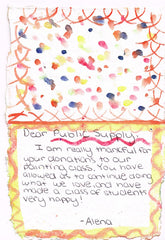 Dear Public Supply,
I am really thankful for
your donations to our
painting class. You have
allowed us to continue doing
what we love and have
made a class of students
very happy!
-Alena